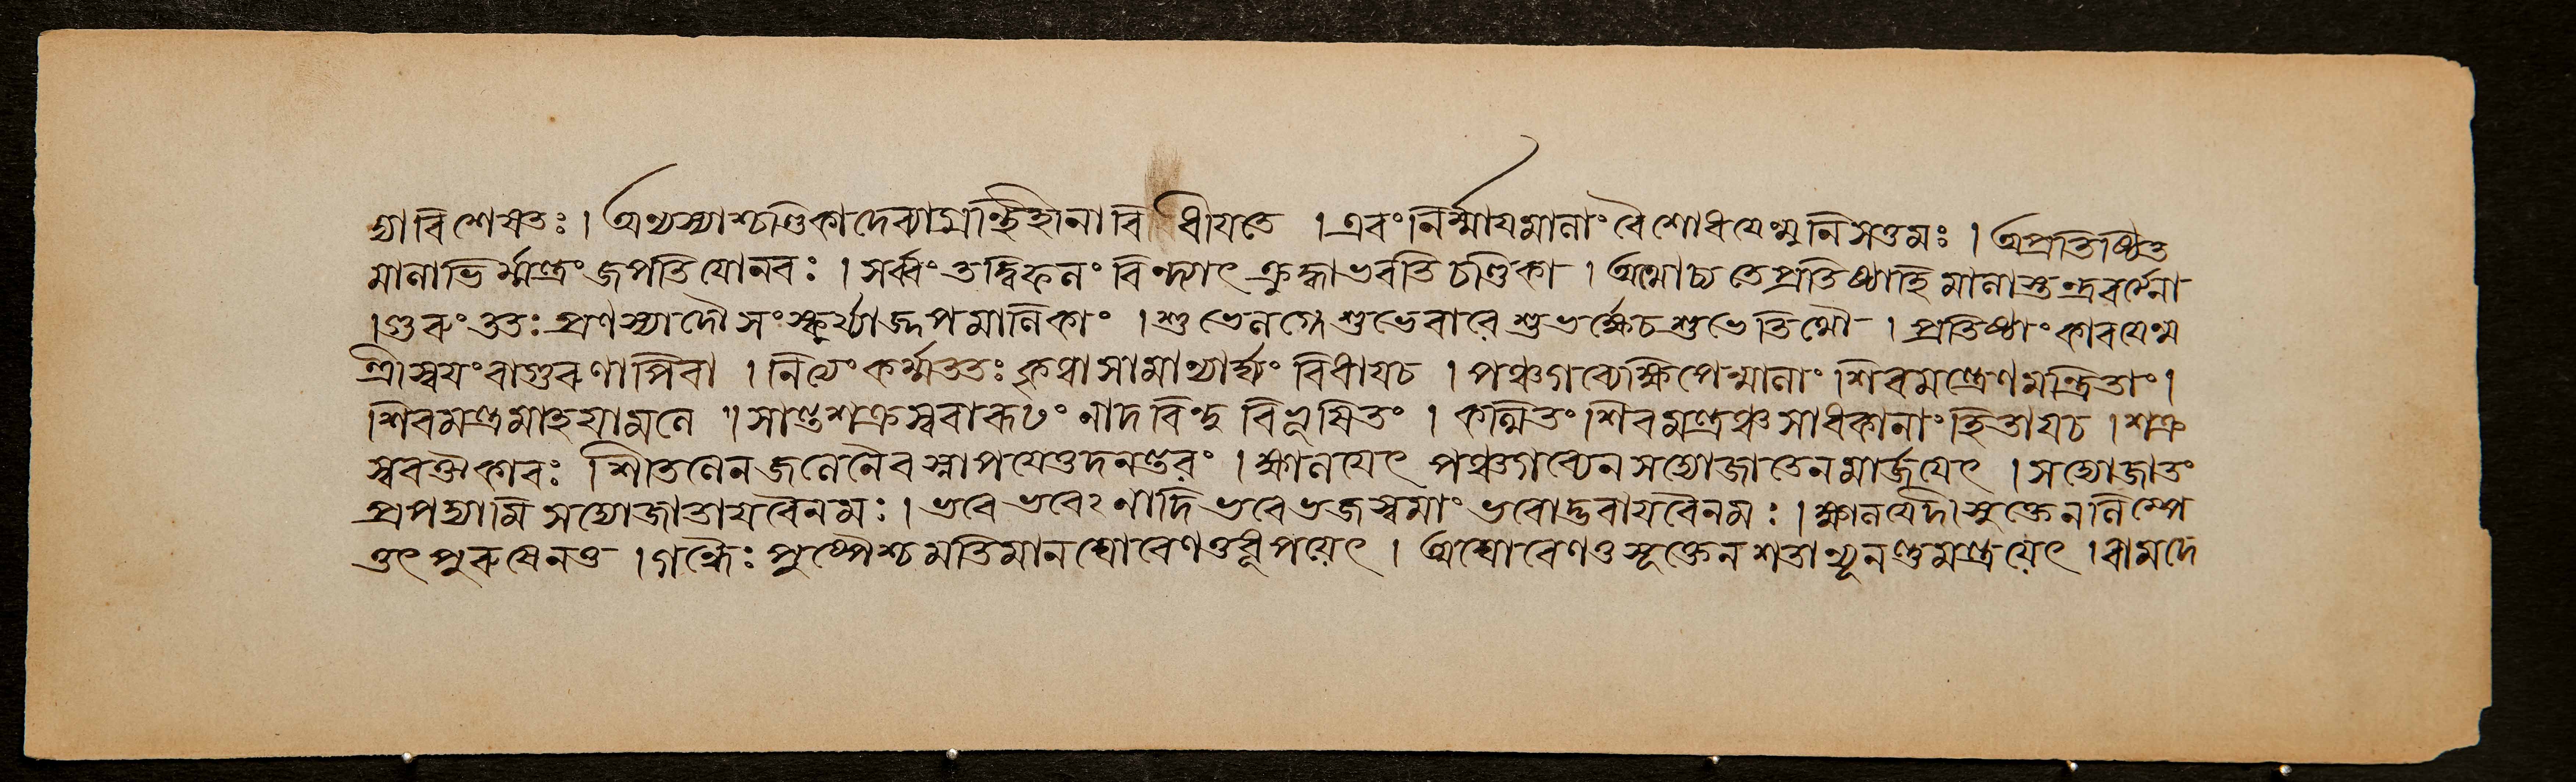 দ্যাবিশেষতঃ । অন্যস্যাশ্চণ্ডিকাদেব্যাগ্রন্থিহীনাবিধীয়তে । এবংনির্ম্মায়মালাংবৈশোধয়েন্মুনিসত্তমঃ । অপ্রতিষ্ঠিত
মালাভির্ম্মন্ত্রংজপতিযোনরঃ । সর্ব্বংতদ্বিফলংবিন্দ্যাৎক্রুদ্ধাভবতিচণ্ডিকা । অথোচ্যতেপ্রতিষ্ঠাহিমালাস্তন্ত্রবর্ত্মনা
। গুরুংততঃপ্রণম্যাদৌসংস্কুর্য্যাজ্জপমালিকাং । শুভেলগ্নেশুভেবারেশুভর্ক্ষেচশুভেতিথৌ । প্রতিষ্ঠাংকারয়েন্ম
ন্ত্রীস্বয়ংবাগুরুণাপিবা । নিত্যংকর্ম্মততঃকৃত্বাসামান্যার্ঘ্যংবিধায়চ । পঞ্চগব্যেক্ষিপেন্মালাংশিবমন্ত্রেণমন্ত্রিতাং ।
শিবমন্ত্রমাহযামলে ॥ সান্তশক্রস্বরারূঢংনাদবিন্দুবিভূষিতং । কথিতংশিবমন্ত্রঞ্চসাধকানাংহিতায়চ । শক্র
স্বরঔকারঃ শীতলেনজলেনৈবস্নাপয়েত্তদনন্তরং । ক্ষালয়েৎ পঞ্চগব্যেনসদ্যোজাতেনমার্জয়েৎ । সদ্যোজাতং
প্রপদ্যামিসদ্যোজাতায়বৈনমঃ । ভবেভবেঽনাদিভবেভজস্বমাংভবোদ্ভবায়বৈনমঃ । ক্ষালয়েদীসূক্তেনলিম্পে
ত্তৎপুরুষেনও । গন্ধৈঃপুষ্পৈশ্চমতিমানঘোরেণওধূপয়েৎ । অঘোরেণওসূক্তেনশতান্যূনন্তুমন্ত্রয়েৎ । বামদে